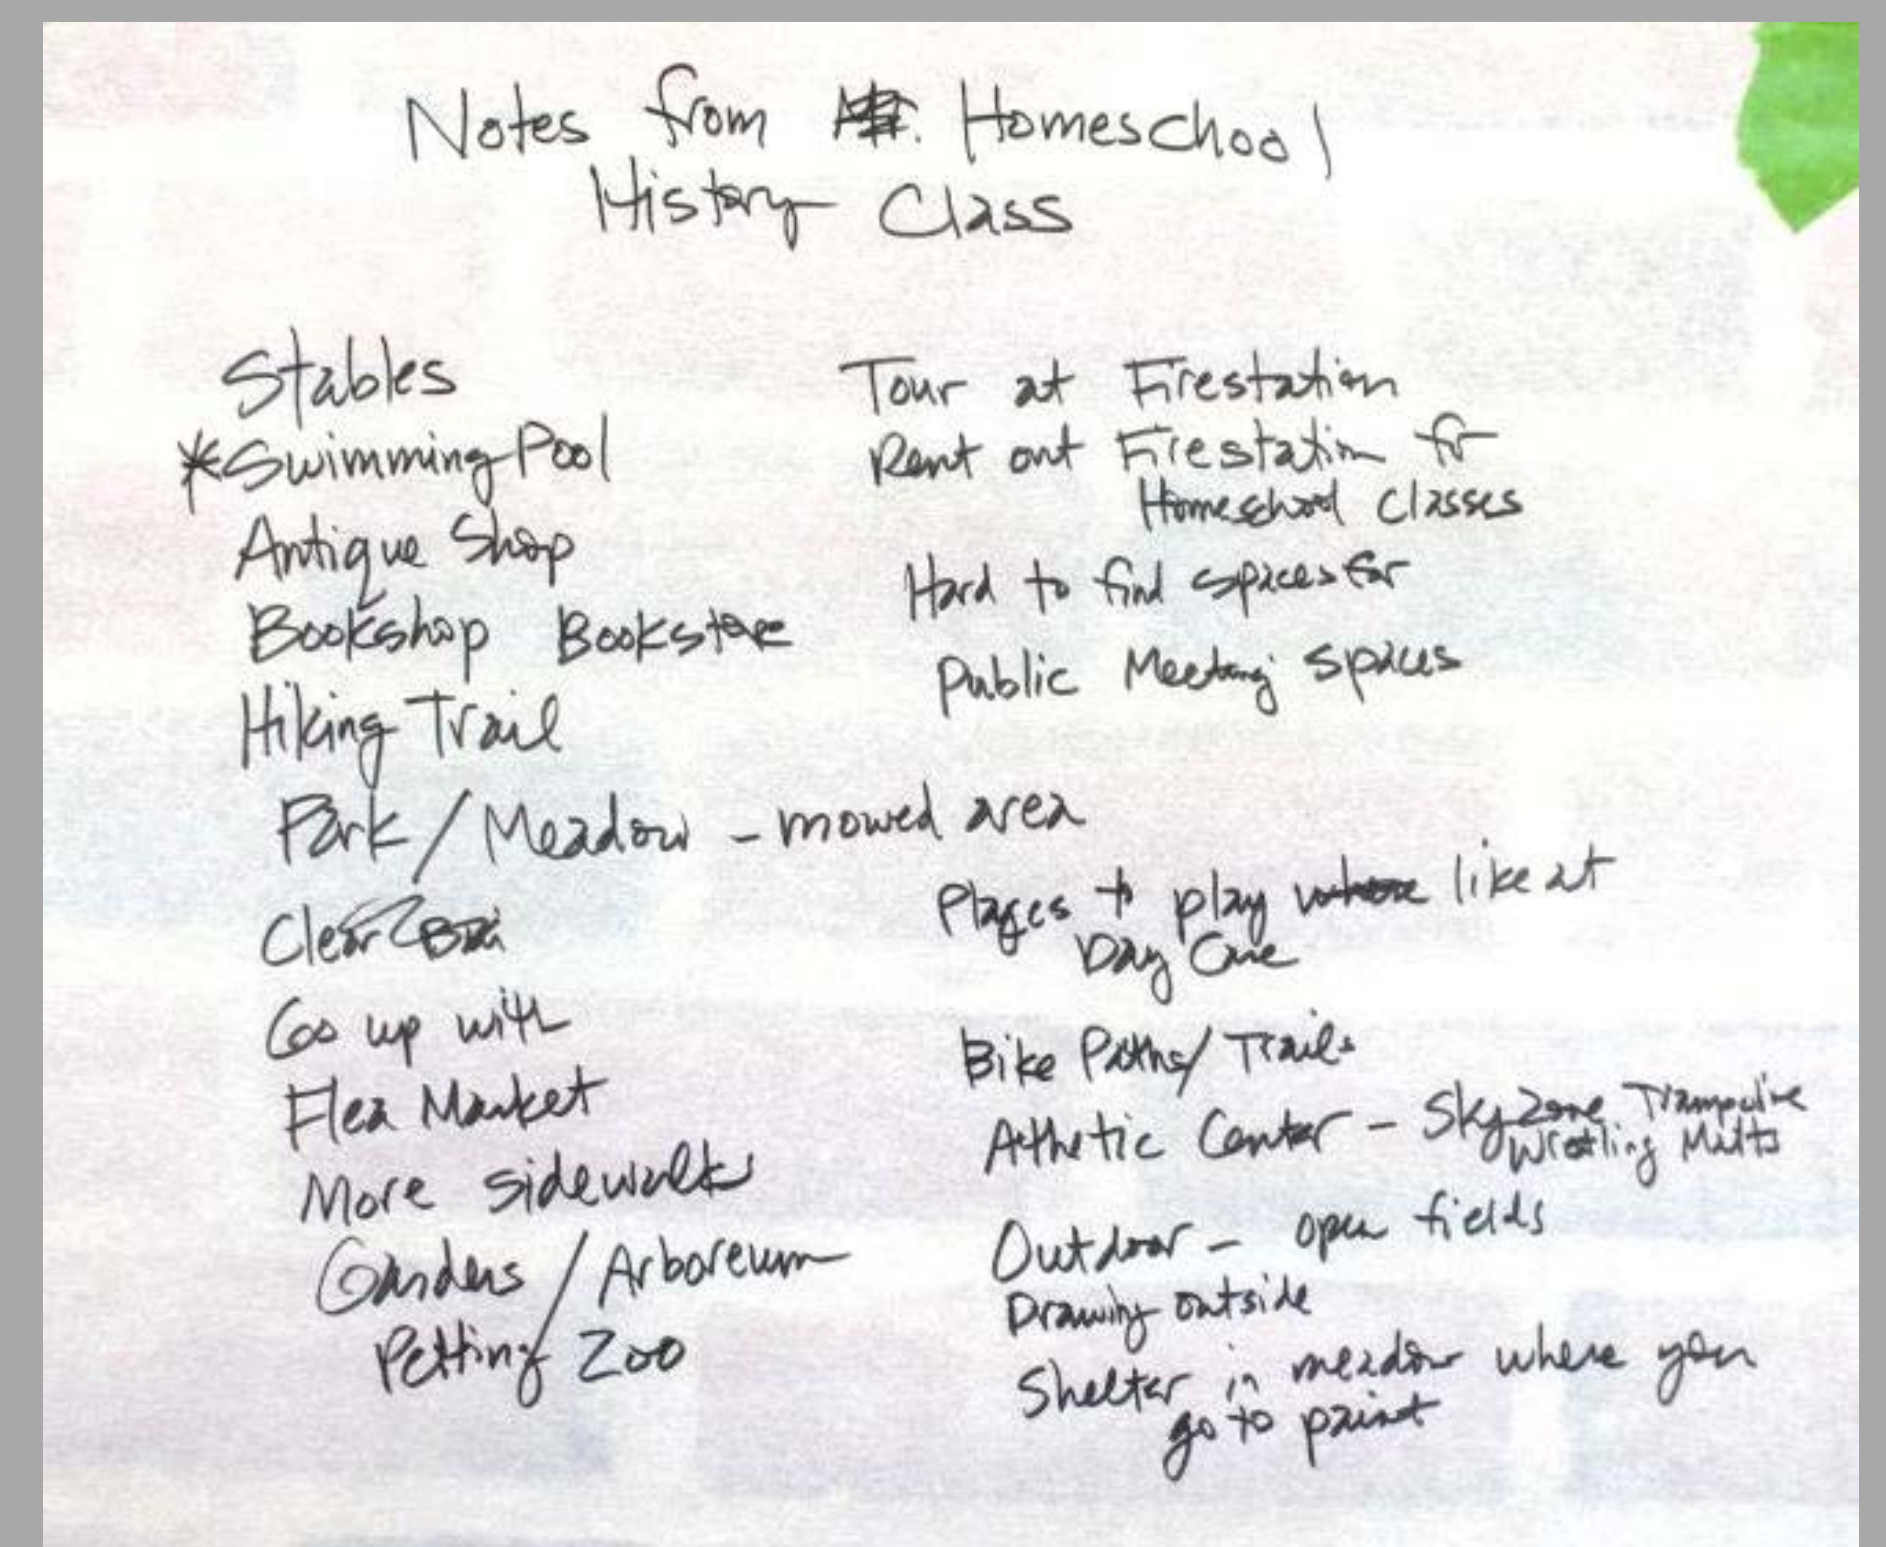 Notes from Homeschool
History Class
Stables
*Swimming Pool
Antique Shop
Bookshop Bookstore
Hiking Trail
Park / Meadow - mowed area
Clear
Go up with
Flea Market
More sidewalks
Gardens / Arboreum
Petting Zoo
Tour at Firestation
Rent out Firestation for
Homeschool Classes
Hard to find spaces for
Public Meeting Spaces
Places to play where like at
Day Care
Bike Paths / Trails
Athetic Center - Sky Zone Trampoline
Wrestling Matts
Outdoor - open fields
Drawing outside
Shelter in meadow where you
go to paint